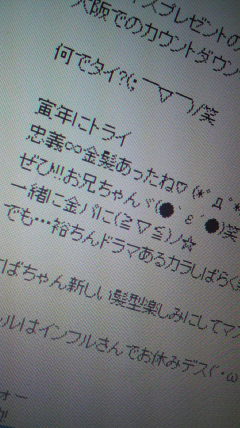 スプレゼントの
大阪でのカウントダウン
何でタイ?(; ̄▽ ̄)/笑
寅年にトライ
忠義∞金髪あったね♡(*´д`*
ぜひ!!お兄ちゃんヾ(●´ε`●)笑
一緒に金パに(≧▽≦)ノ☆
でも…裕ちんドラマあるカラしばらく
ばちゃん新しい髪型楽しみにしてマ
ルはインフルさんでお休みデス(´・ω